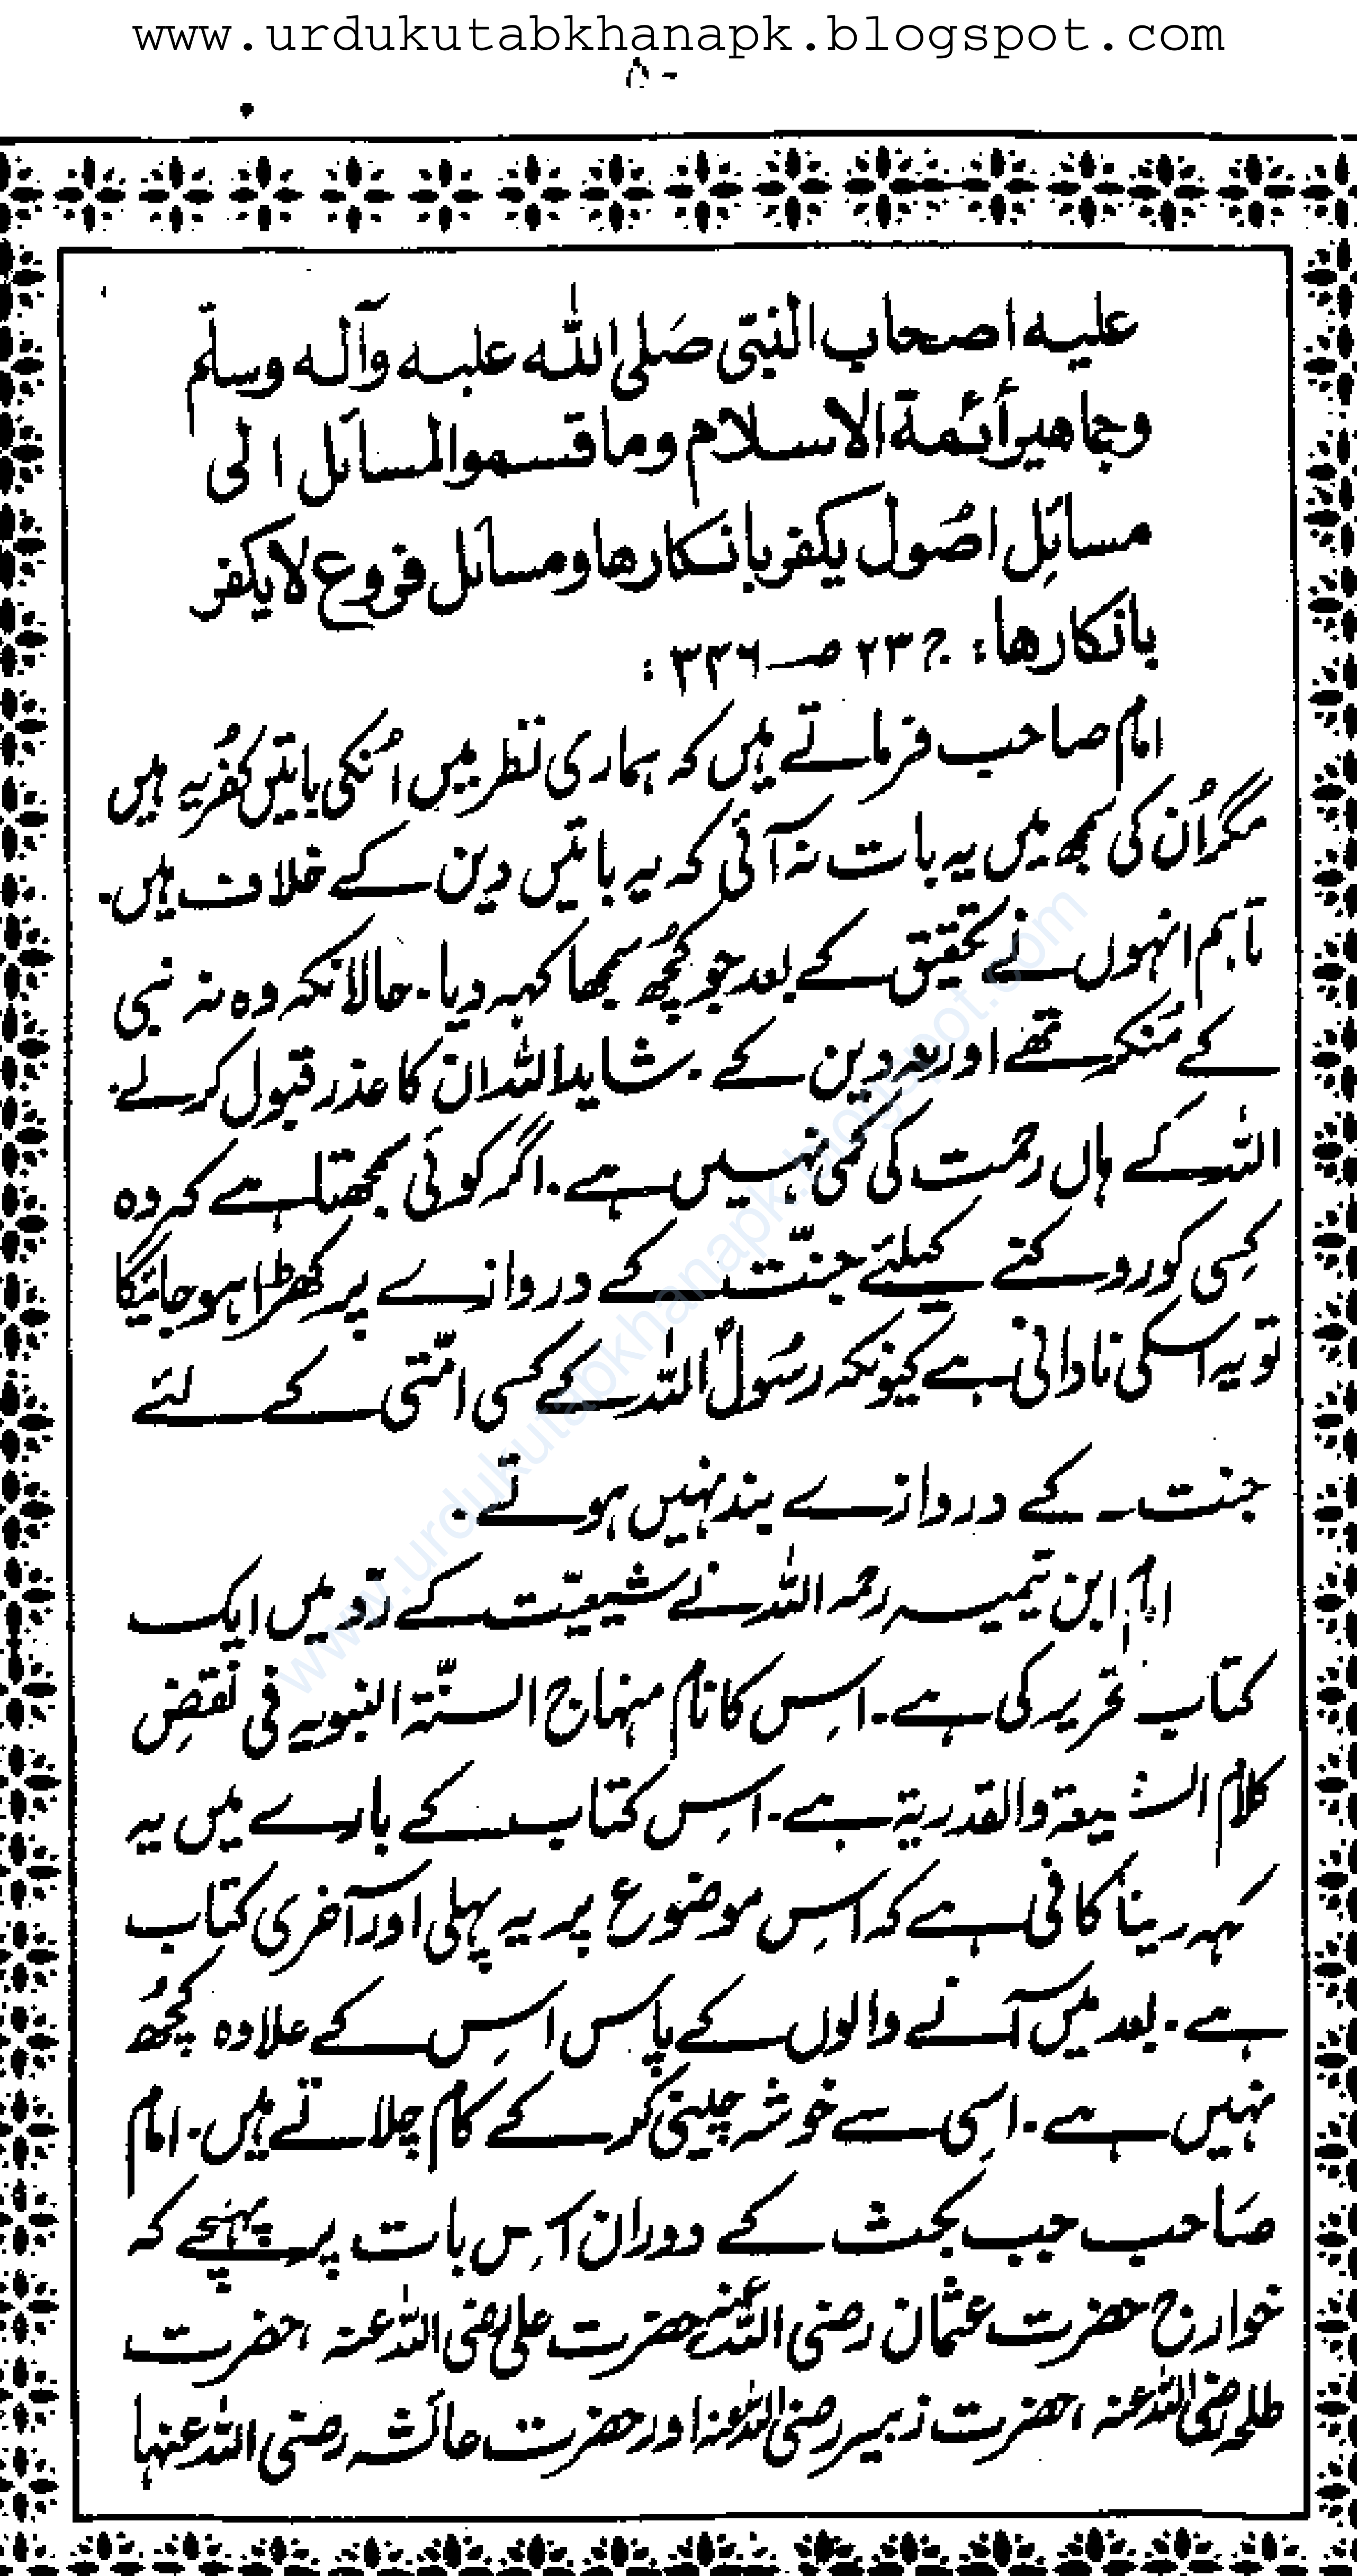 www.urdukutabkhanapk.blogspot.com
۵۰
علیه اصحاب النبّی صَلی اللّٰه علیه وآله وسلّم
وجماهیر أئمة الاسلام وما قسموا المسائل الی
مسائِل اصُول یکفر بانکارها ومسائل فروع لا یکفر
بانکارها: ج ۲۳ صـ ۳۴۶ :
امام صاحب فرماتے ہیں کہ ہماری نظر میں اُنکی باتیں کفُریہ ہیں
مگر اُن کی سمجھ میں یہ بات نہ آئی کہ یہ باتیں دین کے خلاف ہیں۔
تاہم انہوں نے تحقیق کے بعد جو کچُھ سمجھا کہہ دیا۔ حالانکہ وہ نہ نبی
کے مُنکر تھے اور نہ دین کے ۔ شاید اللہ ان کا عذر قبول کرلے۔
اللہ کے ہاں رحمت کی کمی نہیں ہے ۔ اگر کوئی سمجھتا ہے کہ وہ
کِسی کو روکنے کیلئے جنّت کے دروازے پر کھڑا ہو جائیگا
تو یہ اسکی نادانی ہے کیونکہ رسُولؐ اللہ کے کسی امّتی کے لئے
جنت کے دروازے بند نہیں ہوتے ۔
امام ابن تیمیہ رحمہ اللہ نے شیعیّت کے ردّ میں ایک
کتاب تحریر کی ہے ۔ اِس کا نام منہاج السنّۃ النبویہ فی نقضِ
کلام الشیعۃ والقدریۃ ہے ۔ اِس کتاب کے بارے میں یہ
کہہ دینا کافی ہے کہ اسِ موضوع پر یہ پہلی اور آخری کتاب
ہے ۔ بعد میں آنے والوں کے پاس اسِ کے علاوہ کچُھ
نہیں ہے ۔ اسِی سے خوشہ چینی کر کے کام چلاتے ہیں ۔ امام
صَاحب جب بحث کے دوران اِس بات پر پہنچے کہ
خوارج حضرت عثمان رضی اللہ عنہ حضرت علی رضی اللہ عنہ ، حضرت
طلحہ رضی اللہ عنہ ، حضرت زبیر رضی اللہ عنہ اور حضرت عائشہ رضی اللہ عنہا
www.urdukutabkhanapk.blogspot.com